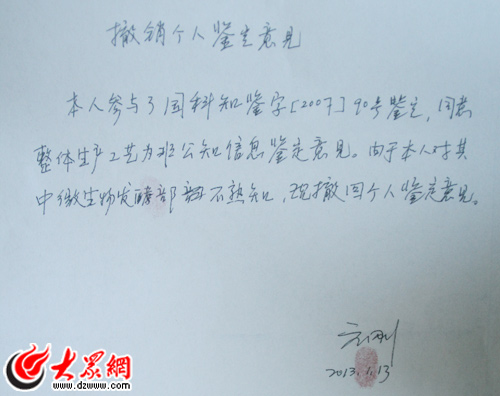 撤销个人鉴定意见
本人参与了国科知鉴字[2007]90号鉴定,同意
整体生产工艺为非公知信息鉴定意见。由于本人对其
中微生物发酵部不熟知,现撤回个人鉴定意见。
2013.1.13
大眾網
www.dzwww.com